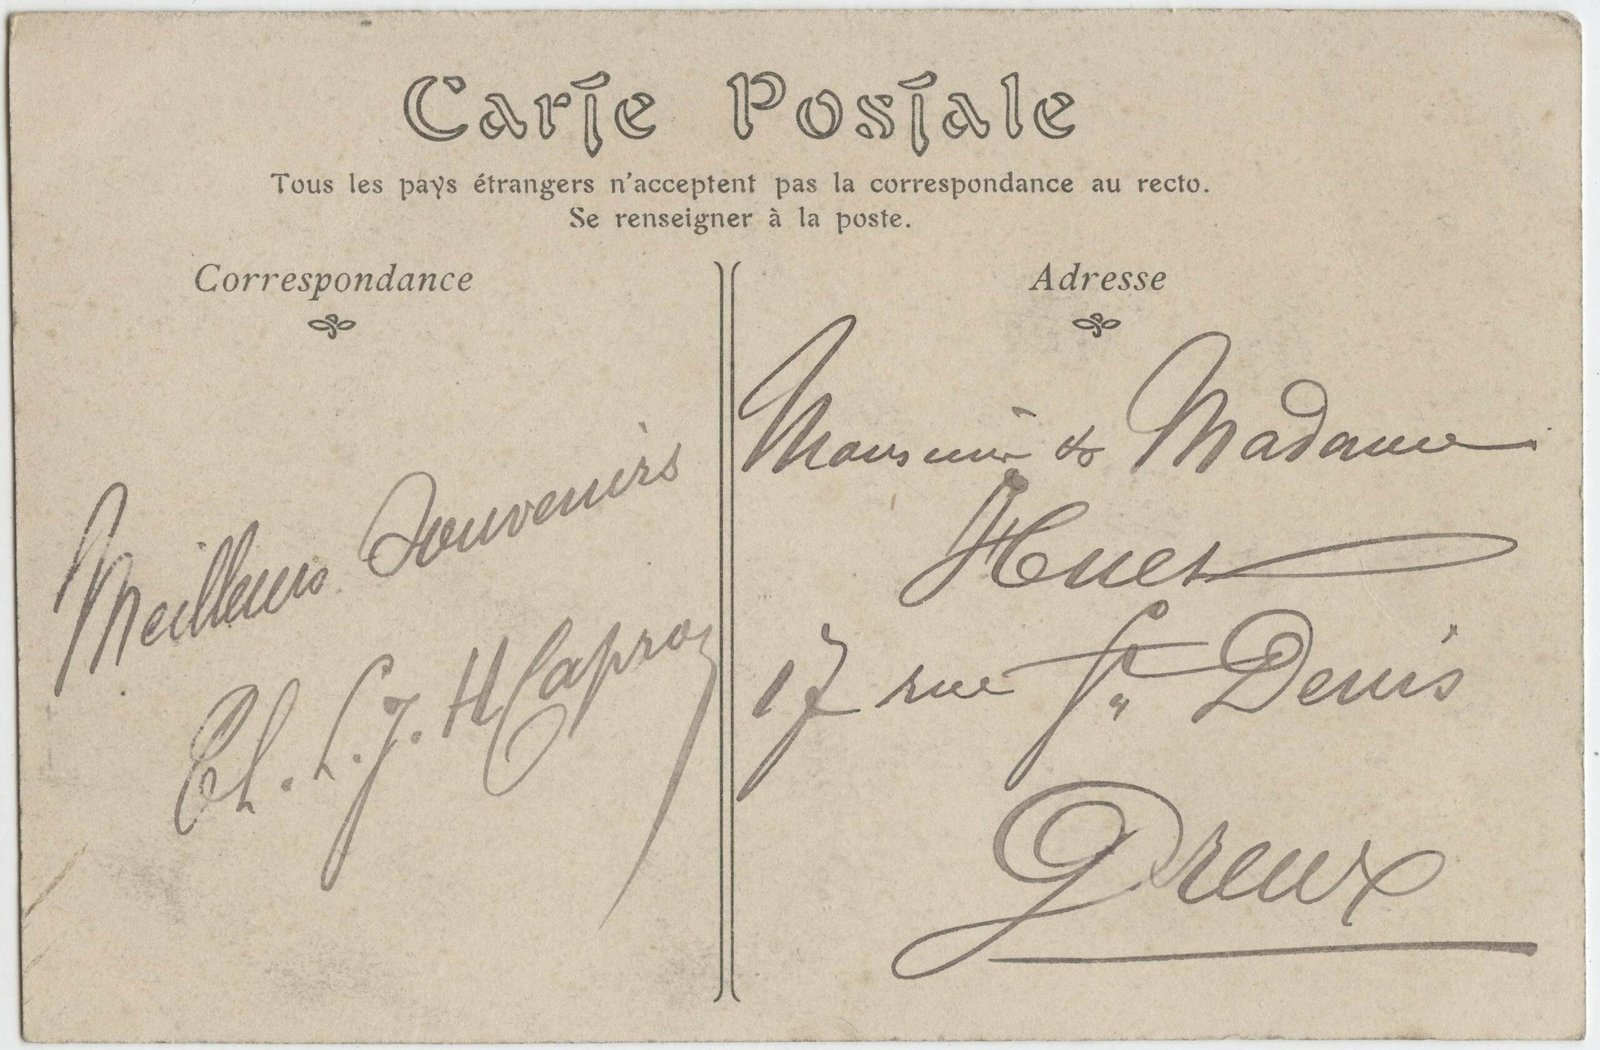 Carte Postale
Tous les pays étrangers n'acceptent pas la correspondance au recto.
Se renseigner à la poste.
Correspondance
Meilleurs Souvenirs
Ch. L. J. H
Adresse
Monsieur & Madame
Huet
17 rue St Denis
Dreux